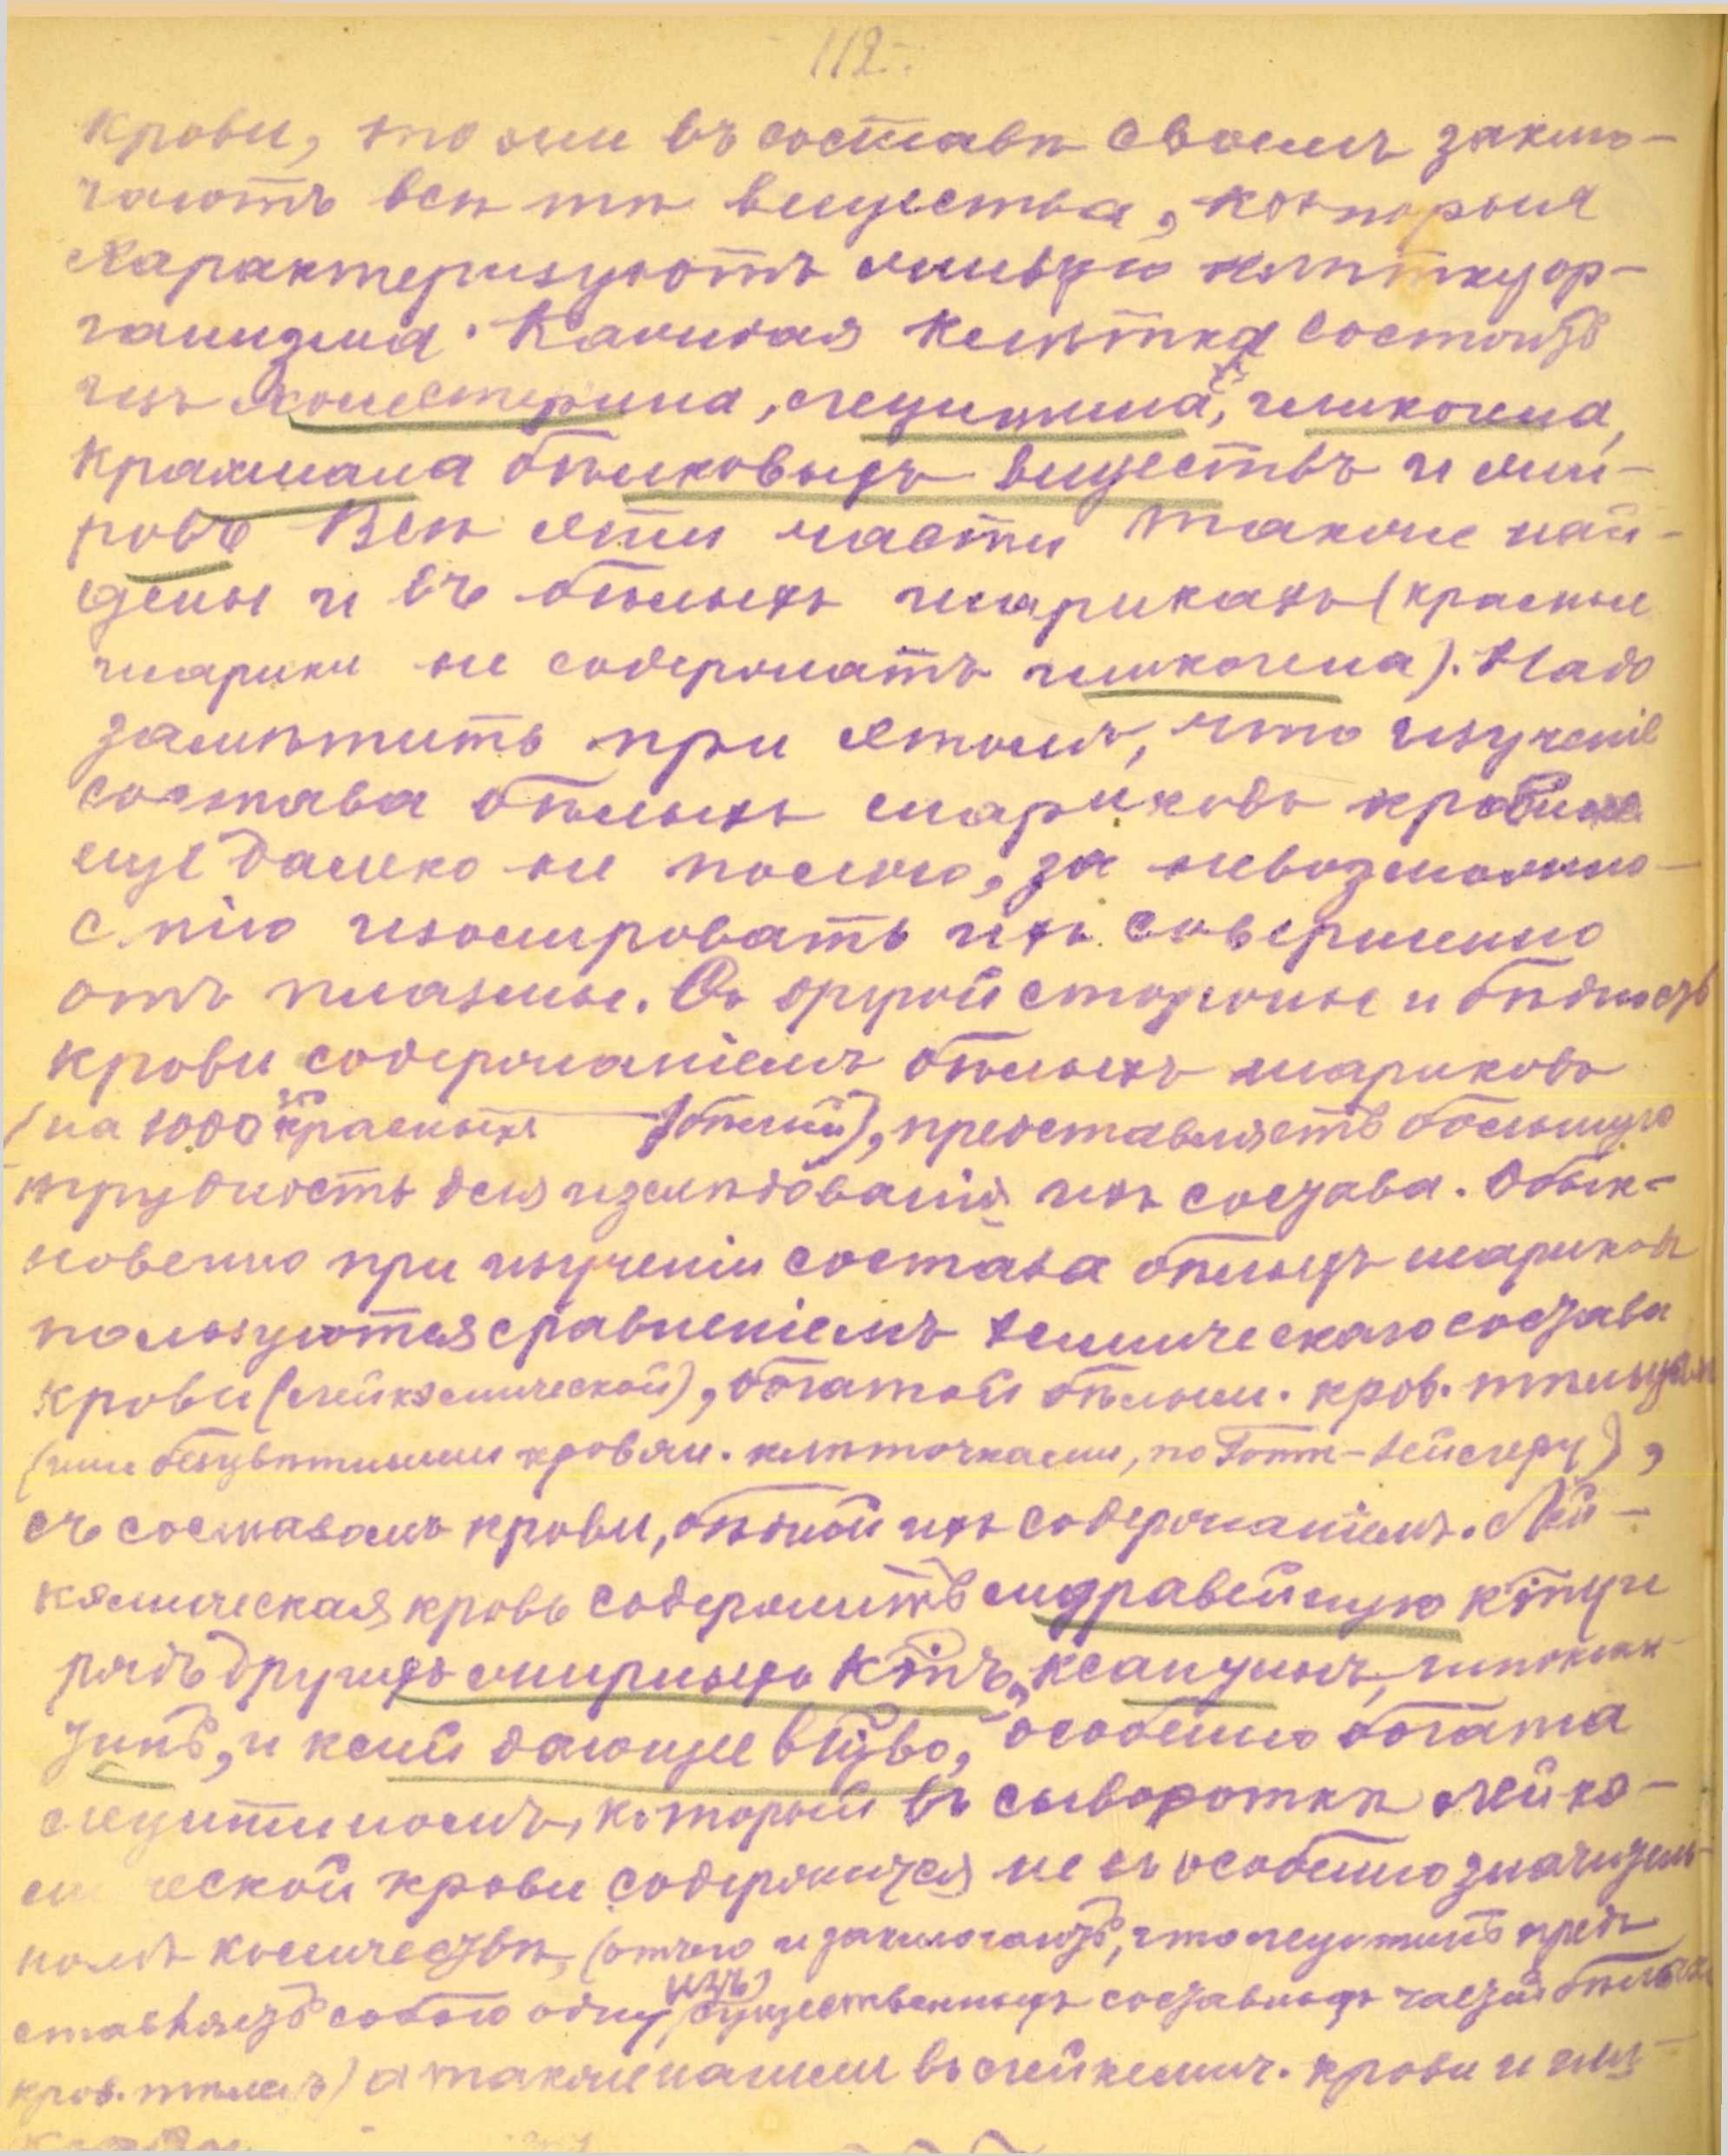 112.
крови, то они въ составѣ своемъ заклю-
чаютъ всѣ тѣ вещества, которыя
характеризуютъ живую клѣтку ор-
ганизма. Каждая клѣтка состоитъ
изъ холестерина, лецитина, гликогена,
крахмала бѣлковыхъ веществъ и жи-
ровъ Всѣ эти части также най-
дены и въ бѣлыхъ шарикахъ (красные
шарики не содержатъ гликогена). Надо
замѣтить при этомъ, что изученіе
состава бѣлыхъ шариковъ крови
еще далеко не полно, за невозможно-
стію изолировать ихъ совершенно
отъ плазмы. Съ другой стороны и бѣдность
крови содержаніемъ бѣлыхъ шариковъ
(на 1000 красныхъ — 1 бѣлый), представляетъ большую
трудность для изслѣдованія ихъ состава. Обык-
новенно при изученіи состава бѣлыхъ шариковъ
пользуются сравненіемъ химическаго состава
крови (лейкэмической), богатой бѣлыми. кров. тѣльцами
(или безцвѣтными кровян. клѣточками, по Гоппе-Зейлеру),
съ составомъ крови, бѣдной ихъ содержаніемъ. Лей-
кэмическая кровь содержитъ муравейную к͞ту и
рядъ другихъ жирныхъ к͞тъ, ксантинъ, гипоксан-
тинъ, и клей дающее в͞щво, особенно богата
лецитиномъ, который въ сывороткѣ лейкэ-
ми ческой крови содержится не въ особенно значитель-
номъ количествѣ, (отчего и заключаютъ, что лецитинъ пред-
ставляетъ собою одну (изъ) существенныхъ составныхъ частей бѣлыхъ
кров. тѣлецъ) а также нашли въ лейкемич. крови и гли-